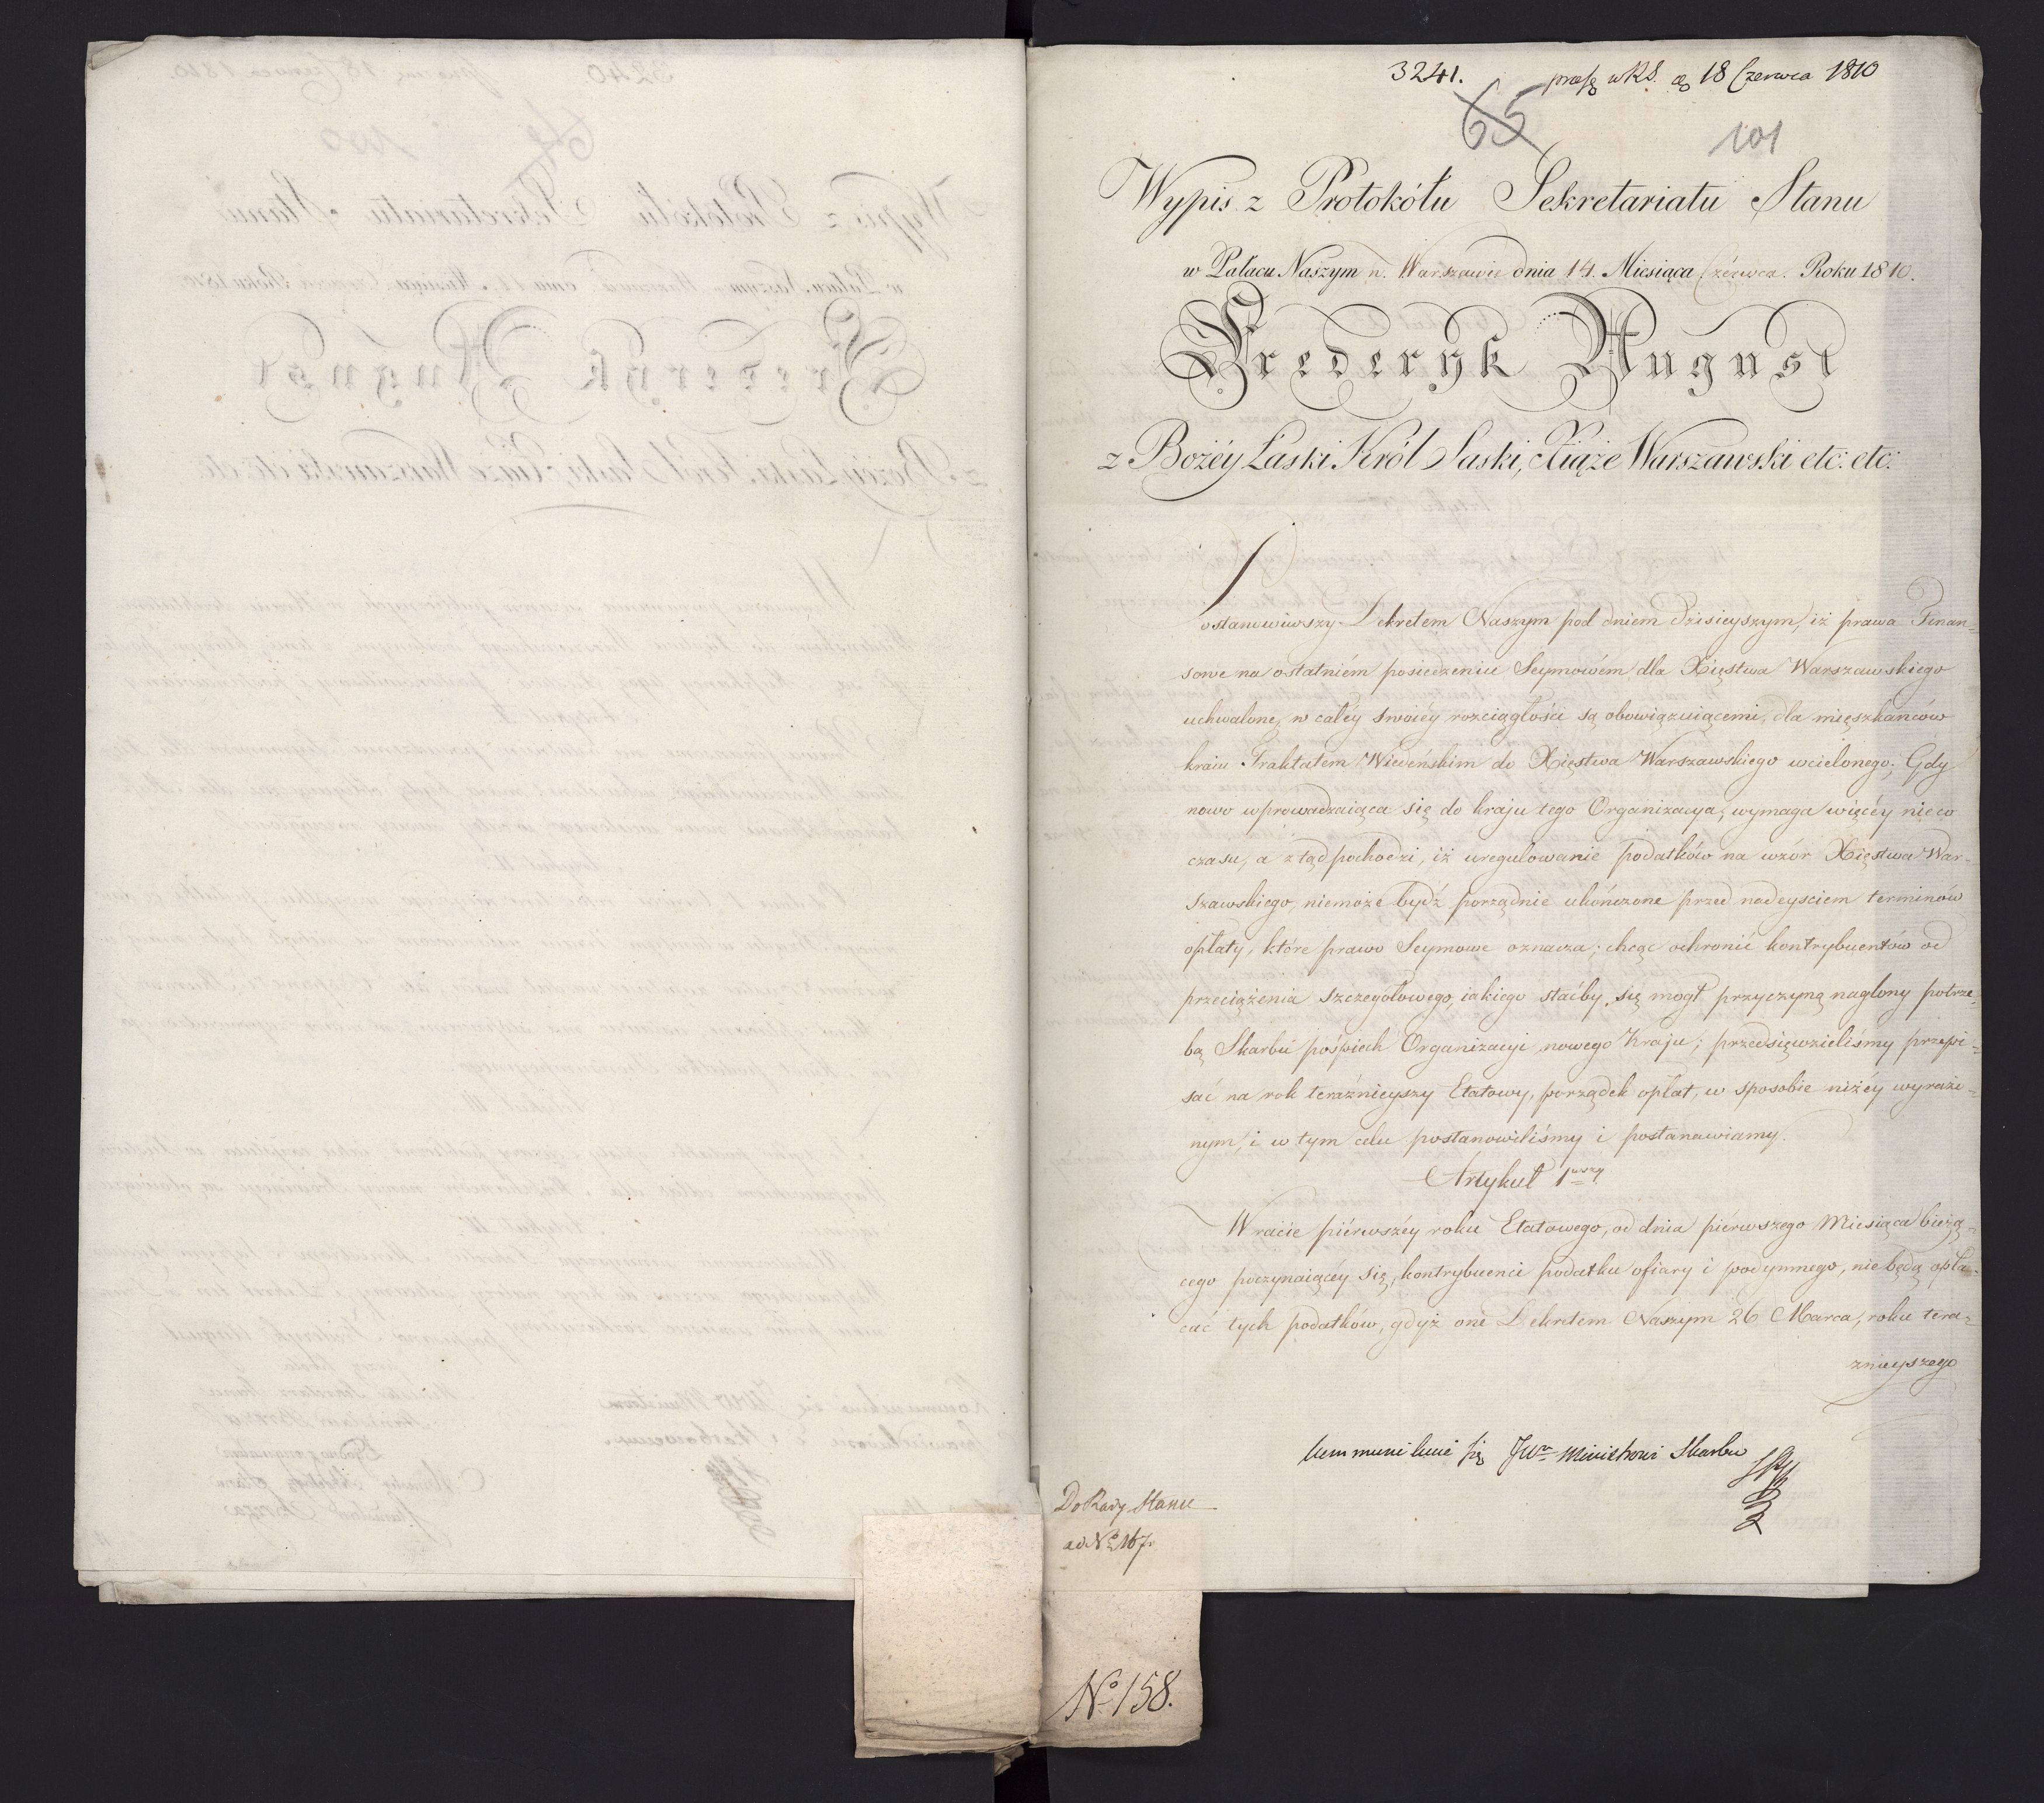 3241. praes w RS. d. 18 Czerwca 1810
65
101
Wypis z Protokółu Sekretariatu Stanu
w Pałacu Naszym w Warszawie dnia 14. Miesiąca Czérwca. Roku 1810.
Frederyk August
z Bożéy Łaski Król Saski, Xiąże Warszawski etc: etc:
Postanowiwszy Dekretem Naszym pod dniem dzisieyszym, iż prawa Finan-
sowe na ostatniém posiedzeniu Seymowém dla Xięstwa Warszawskiego
uchwalone, w całéy swoiéy rozciągłości są obowiązuiącemi, dla mięszkańców
kraiu Traktatem Wiedeńskim do Xięstwa Warszawskiego wcielonego; Gdy
nowo wprowadzaiąca się do kraju tego Organizacya, wymaga więcéy nieco
czasu, a ztąd pochodzi, iż uregulowanie podatków na wzór Xięstwa War-
szawskiego, niemoże bydź porządnie ukończone przed nadeyściem terminów
opłaty, które prawo Seymowe oznacza; chcąc ochronić kontrybuentów od
przeciążenia szczegółowego, iakiego staćby się mogł przyczyną naglony potrze-
bą Skarbu pośpiech Organizacyi nowego Kraju; przedsięwzieliśmy przepi-
sać na rok teraźnieyszy Etatowy, porządek opłat, w sposobie niżéy wyrażo-
nym, i w tym celu postanowiliśmy i postanawiamy.
Artykuł 1wszy
W racie piérwszéy roku Etatowego, od dnia piérwszego Miesiąca bieżą-
cego poczynaiącéy się, kontrybuenci podatku ofiary i podymnego, nie będą opła-
cać tych podatków, gdyż one Dekretem Naszym 26 Marca, roku tera-
znieyszego
kommunikuie się JWu Ministrowi Skarbu
Do Rady Stanu
ad No 167
No 158.